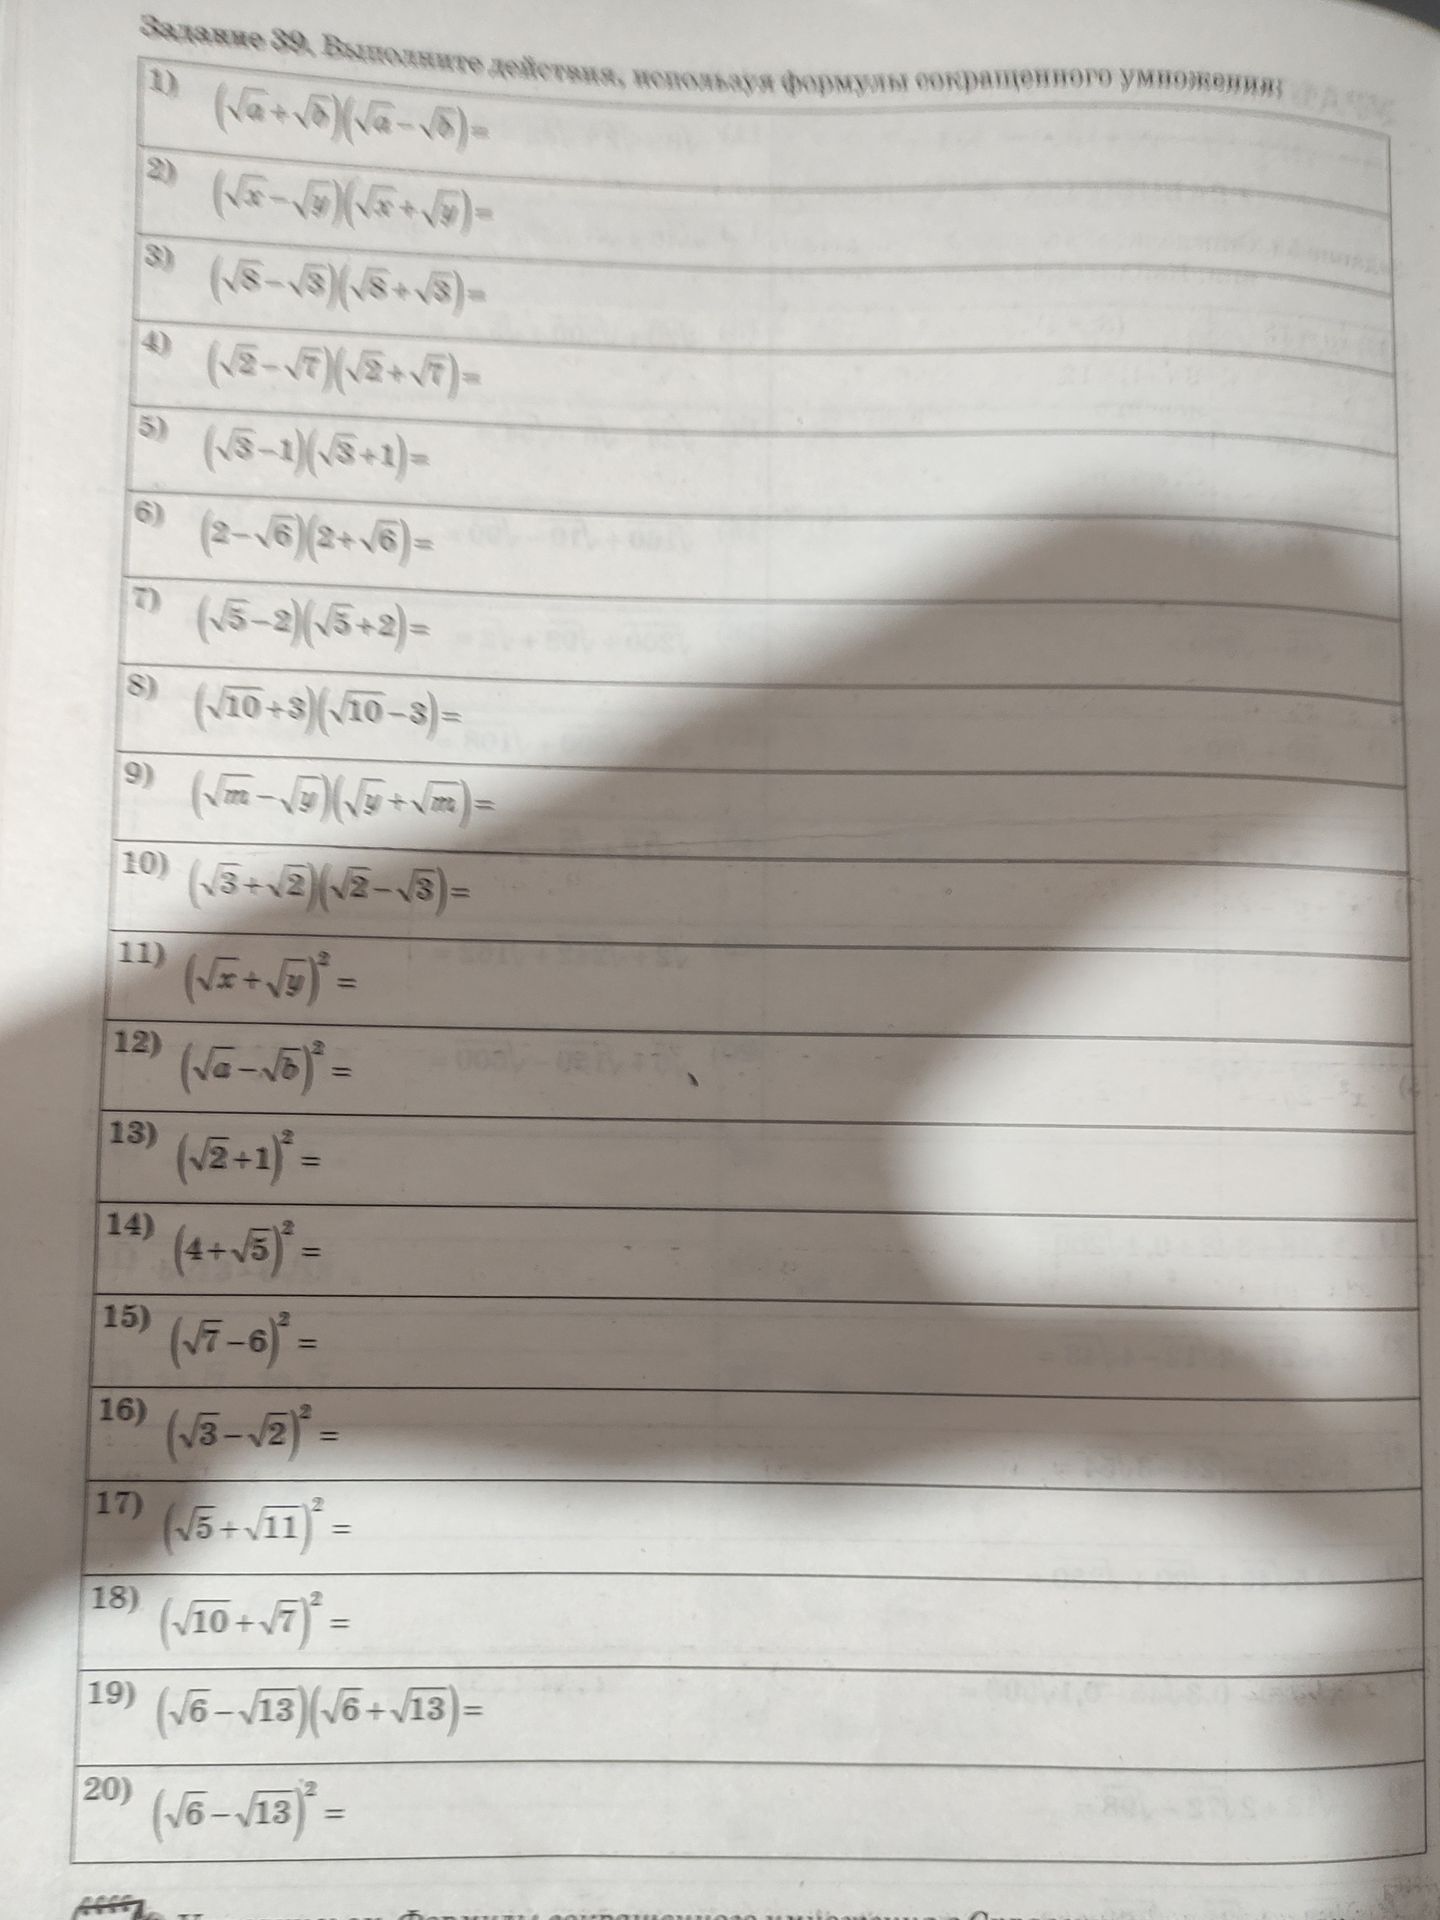 Задание 39. Выполните действия, используя формулы сокращенного умножения:
1) (√a+√b)(√a−√b)=
2) (√x−√y)(√x+√y)=
3) (√8−√3)(√8+√3)=
4) (√2−√7)(√2+√7)=
5) (√3−1)(√3+1)=
6) (2−√6)(2+√6)=
7) (√5−2)(√5+2)=
8) (√10+3)(√10−3)=
9) (√m−√y)(√y+√m)=
10) (√3+√2)(√2−√3)=
11) (√x+√y)²=
12) (√a−√b)²=
13) (√2+1)²=
14) (4+√5)²=
15) (√7−6)²=
16) (√3−√2)²=
17) (√5+√11)²=
18) (√10+√7)²=
19) (√6−√13)(√6+√13)=
20) (√6−√13)²=
Формулы сокращенного умножения